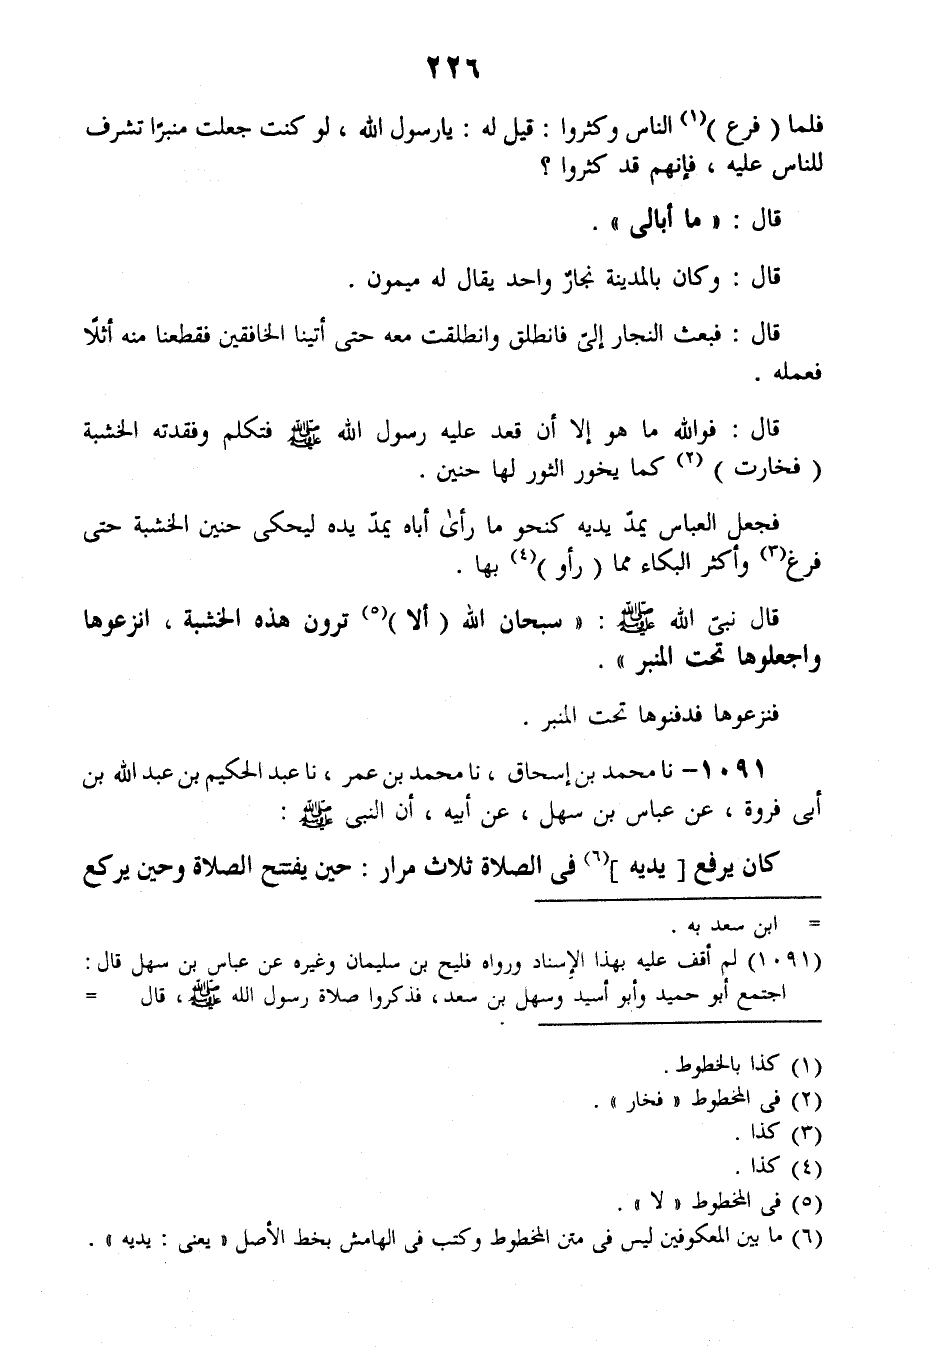 ٢٢٦
فلما ( فرع )(١) الناس وكثروا : قيل له : يارسول الله ، لو كنت جعلت منبرًا تشرف
للناس عليه ، فإنهم قد كثروا ؟
قال : « ما أبالى » .
قال : وكان بالمدينة نجارٌ واحد يقال له ميمون .
قال : فبعث النجار إلىّ فانطلق وانطلقت معه حتى أتينا الخافقين فقطعنا منه أثلًا
فعمله .
قال : فوالله ما هو إلا أن قعد عليه رسول الله ﷺ فتكلم وفقدته الخشبة
( فخارت ) (٢) كما يخور الثور لها حنين .
فجعل العباس يمدّ يديه كنحو ما رأىٰ أباه يمدّ يده ليحكى حنين الخشبة حتى
فرغ(٣) وأكثر البكاء مما ( رأو )(٤) بها .
قال نبىّ الله ﷺ : « سبحان الله ( ألا )(٥) ترون هذه الخشبة ، انزعوها
واجعلوها تحت المنبر » .
فنزعوها فدفنوها تحت المنبر .
١٠٩١- نا محمد بن إسحاق ، نا محمد بن عمر ، نا عبد الحكيم بن عبد الله بن
أبى فروة ، عن عباس بن سهل ، عن أبيه ، أن النبى ﷺ :
كان يرفع [ يديه ](٦) فى الصلاة ثلاث مرار : حين يفتتح الصلاة وحين يركع
= ابن سعد به .
(١٠٩١) لم أقف عليه بهذا الإسناد ورواه فليح بن سليمان وغيره عن عباس بن سهل قال :
اجتمع أبو حميد وأبو أسيد وسهل بن سعد، فذكروا صلاة رسول الله ﷺ ، قال =
(١) كذا بالخطوط .
(٢) فى المخطوط « فخار » .
(٣) كذا .
(٤) كذا .
(٥) فى المخطوط « لا » .
(٦) ما بين المعكوفين ليس فى متن المخطوط وكتب فى الهامش بخط الأصل « يعنى : يديه » .